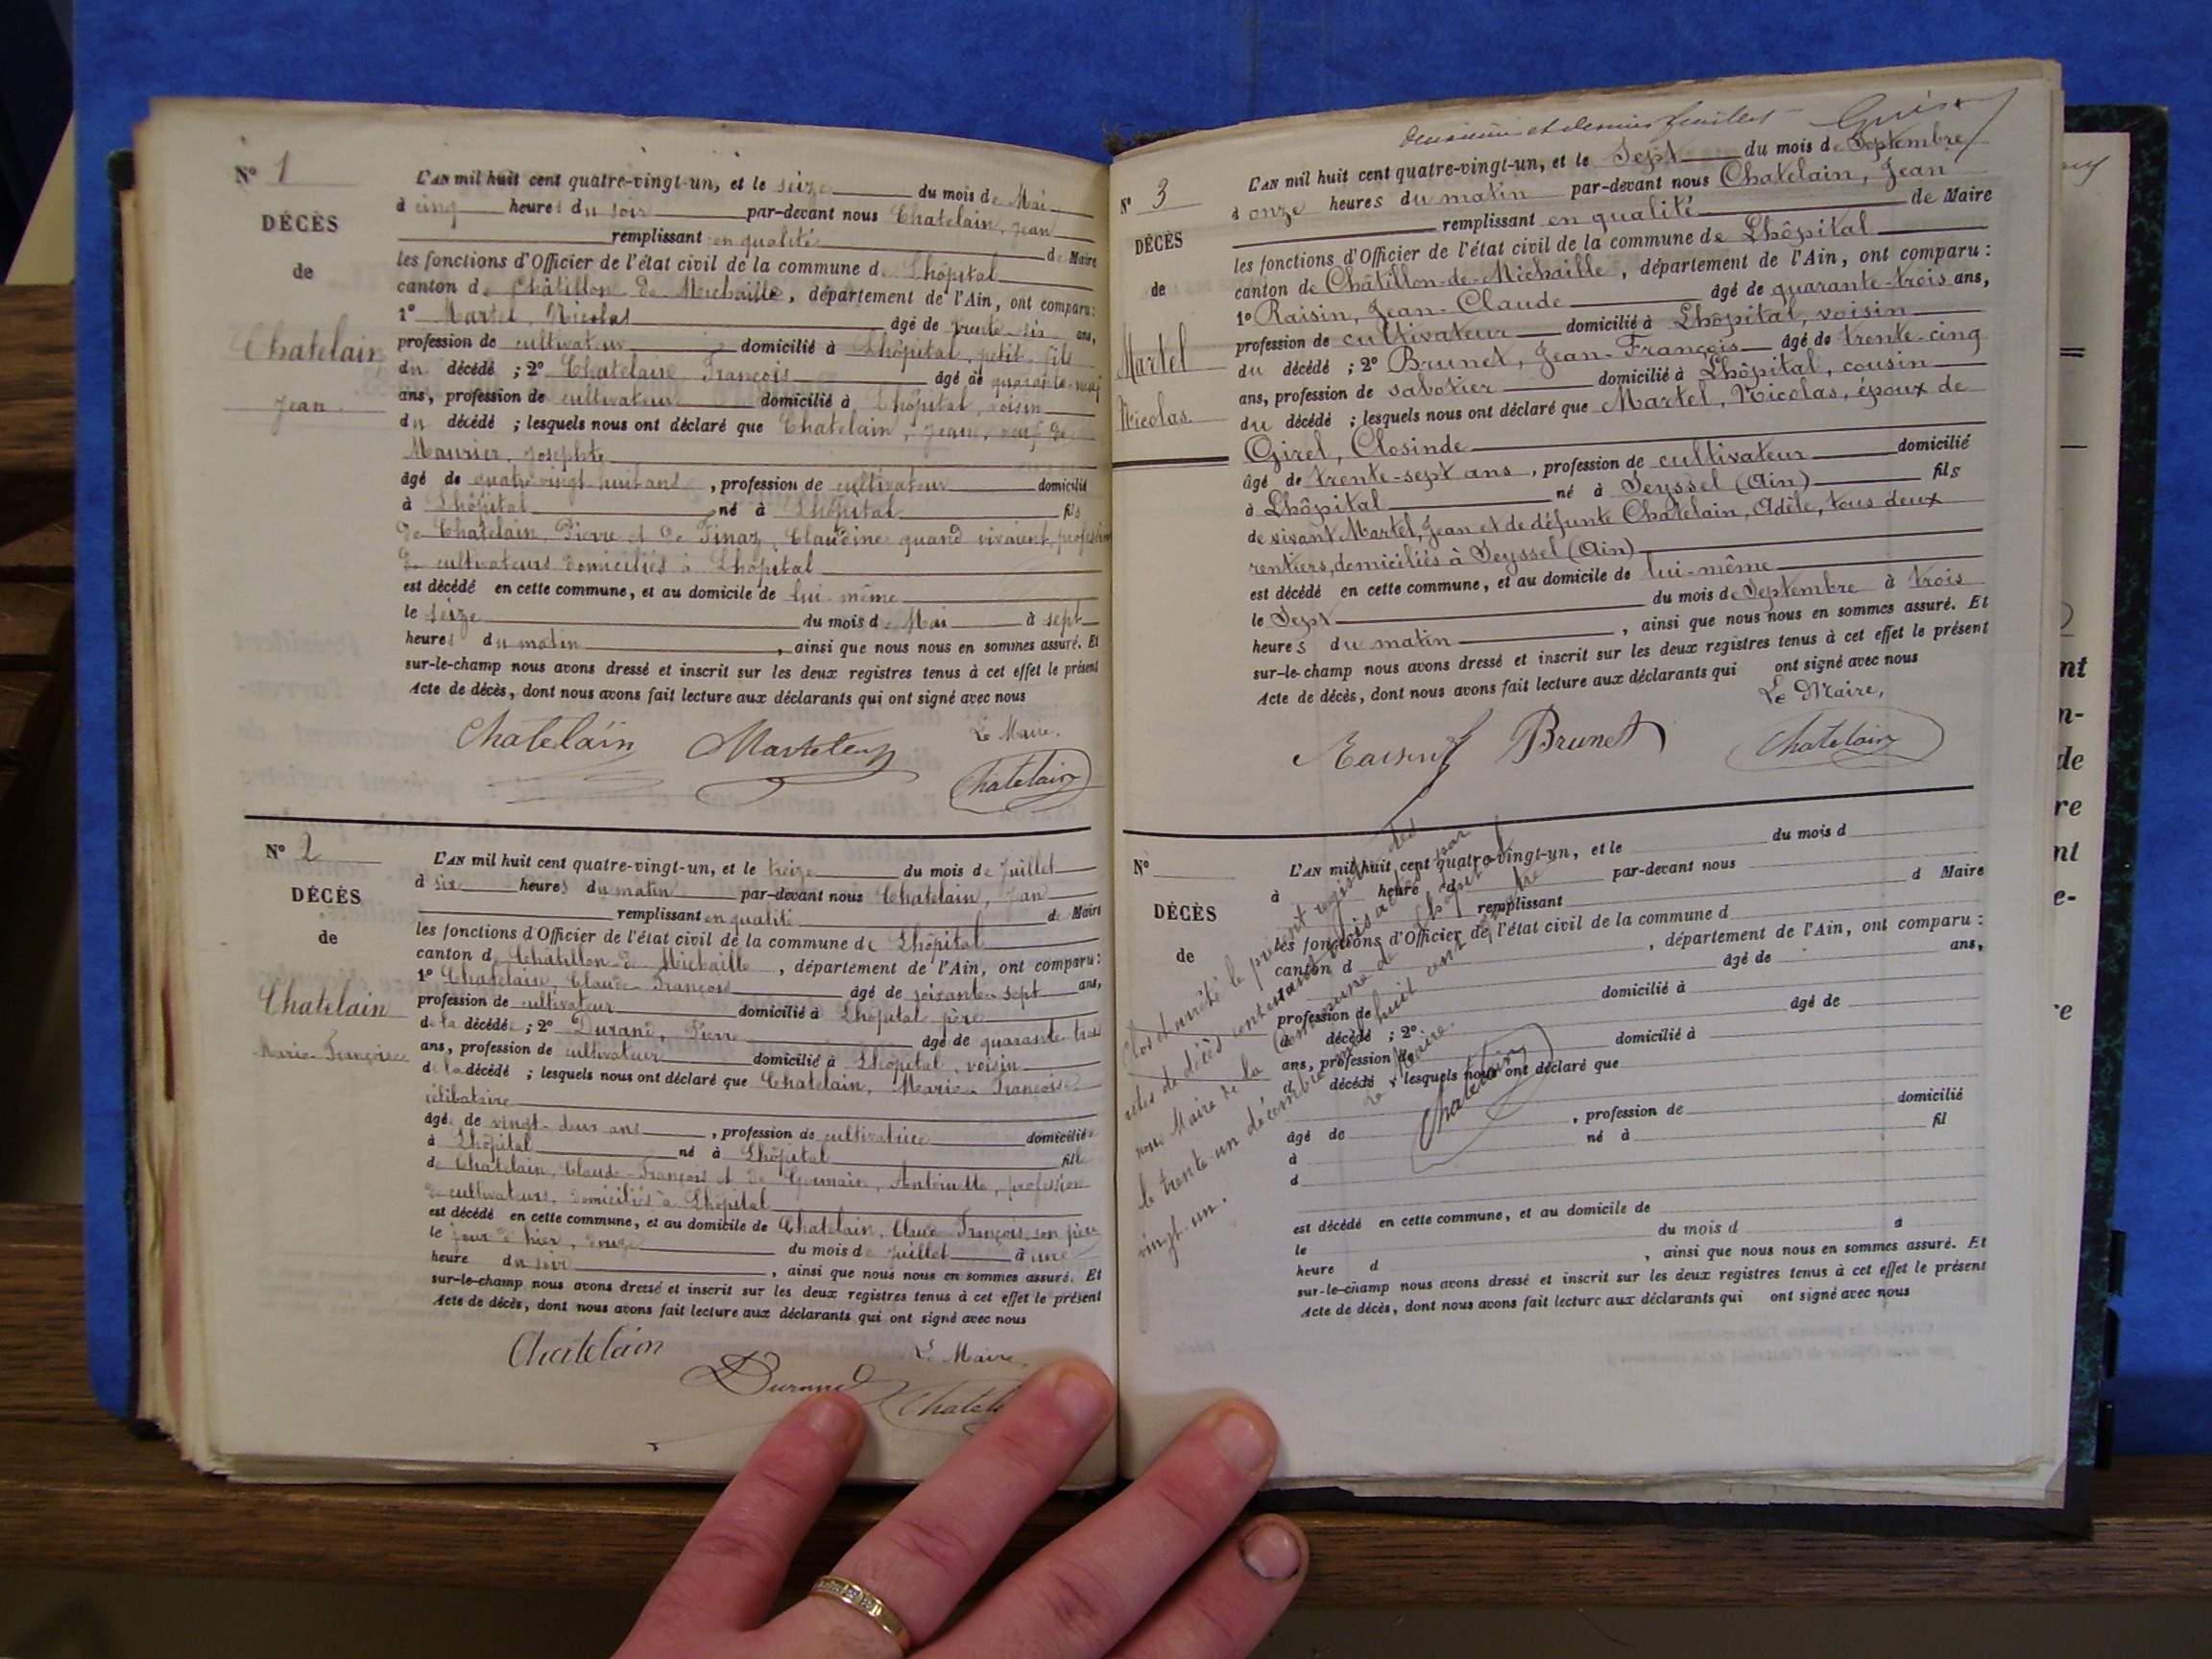 N° 1
DÉCÈS
de
Chatelain,
Jean
L'AN mil huit cent quatre-vingt-un, et le seize du mois de Mai
à cinq heures du soir par-devant nous Chatelain, Jean
remplissant en qualité de Maire
les fonctions d'Officier de l'état civil de la commune de Lhôpital
canton de Châtillon de Michaille, département de l'Ain, ont comparu:
1° Martel, Nicolas âgé de trente-six ans,
profession de cultivateur domicilié à Lhôpital, petit-fils
du décédé ; 2° Chatelain François âgé de quarante-neuf
ans, profession de cultivateur domicilié à Lhôpital, voisin
du décédé ; lesquels nous ont déclaré que Chatelain, Jean, veuf de
Maurier, Josephte
âgé de quatre vingt huit ans, profession de cultivateur domicilié
à Lhôpital né à Lhôpital fils
de Chatelain, Pierre et de Tinaz, Claudine quand vivaient, profession
de cultivateurs domiciliés à Lhôpital
est décédé en cette commune, et au domicile de lui-même
le seize du mois de Mai à sept
heures du matin, ainsi que nous nous en sommes assuré. Et
sur-le-champ nous avons dressé et inscrit sur les deux registres tenus à cet effet le présent
Acte de décès, dont nous avons fait lecture aux déclarants qui ont signé avec nous
Le Maire,
Chatelain Chatelain
N° 2
DÉCÈS
de
Chatelain
Marie-Françoise
L'AN mil huit cent quatre-vingt-un, et le treize du mois de Juillet
à six heures du matin par-devant nous Chatelain, Jean
remplissant en qualité de Maire
les fonctions d'Officier de l'état civil de la commune de Lhôpital
canton de Châtillon de Michaille, département de l'Ain, ont comparu:
1° Chatelain, Claude-François âgé de soixante-sept ans,
profession de cultivateur domicilié à Lhôpital père
de la décédée ; 2° Durand, Pierre âgé de quarante-trois
ans, profession de cultivateur domicilié à Lhôpital, voisin
de la décédé ; lesquels nous ont déclaré que Chatelain, Marie-Françoise
célibataire
âgé de vingt-deux ans, profession de cultivatrice domiciliée
à Lhôpital né à Lhôpital fille
de Chatelain, Claude-François et de Germain, Antoinette, profession
de cultivateurs, domiciliés à Lhôpital
est décédé en cette commune, et au domicile de Chatelain, Claude François, son père
le jour d'hier, douze du mois de Juillet à une
heure du soir, ainsi que nous nous en sommes assuré. Et
sur-le-champ nous avons dressé et inscrit sur les deux registres tenus à cet effet le présent
Acte de décès, dont nous avons fait lecture aux déclarants qui ont signé avec nous
Le Maire,
Chatelain Durand
deuxième et dernier feuillet
N° 3
DÉCÈS
de
Martel
Nicolas
L'AN mil huit cent quatre-vingt-un, et le Sept du mois de Septembre
à onze heures du matin par-devant nous Chatelain, Jean
remplissant en qualité de Maire
les fonctions d'Officier de l'état civil de la commune de Lhôpital
canton de Châtillon-de-Michaille, département de l'Ain, ont comparu :
1° Raisin, Jean-Claude âgé de quarante-trois ans,
profession de cultivateur domicilié à Lhôpital, voisin
du décédé ; 2° Brunet, Jean-François âgé de trente-cinq
ans, profession de sabotier domicilié à Lhôpital, cousin
du décédé ; lesquels nous ont déclaré que Martel, Nicolas, époux de
Girel, Closinde
âgé de trente-sept ans, profession de cultivateur domicilié
à Lhôpital né à Seyssel (Ain) fils
de vivant Martel, Jean et de défunte Chatelain, Adèle, tous deux
rentiers, domiciliés à Seyssel (Ain)
est décédé en cette commune, et au domicile de lui-même
le Sept du mois de Septembre à trois
heures du matin, ainsi que nous nous en sommes assuré. Et
sur-le-champ nous avons dressé et inscrit sur les deux registres tenus à cet effet le présent
Acte de décès, dont nous avons fait lecture aux déclarants qui ont signé avec nous
Le Maire,
Brunet Chatelain
N°
DÉCÈS
de
L'AN mil huit cent quatre-vingt-un, et le du mois d
à heure d par-devant nous
remplissant d Maire
les fonctions d'Officier de l'état civil de la commune d
canton d, département de l'Ain, ont comparu :
âgé de ans,
profession de domicilié à
d décédé ; 2° âgé de
ans, profession de domicilié à
d décédé ; lesquels nous ont déclaré que
âgé de, profession de domicilié
à né à fil
d
est décédé en cette commune, et au domicile de
le du mois d à
heure d, ainsi que nous nous en sommes assuré. Et
sur-le-champ nous avons dressé et inscrit sur les deux registres tenus à cet effet le présent
Acte de décès, dont nous avons fait lecture aux déclarants qui ont signé avec nous
Clos et arrêté le présent registre des
actes de décès contenant trois actes par
nous Maire de la Commune de Lhôpital
le trente-un décembre mil huit cent quatre
vingt-un.
Le Maire.
Chatelain